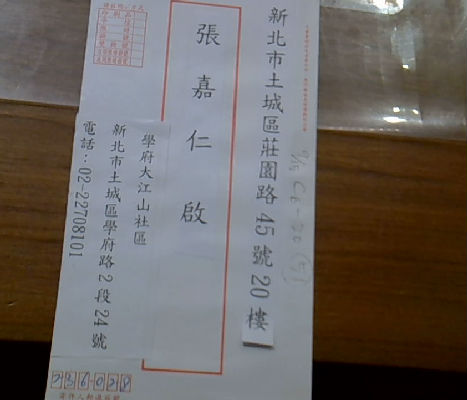 新北市土城區莊園路45號20樓
張嘉仁 啟
學府大江山社區
新北市土城區學府路2段24號
電話：02-22708101